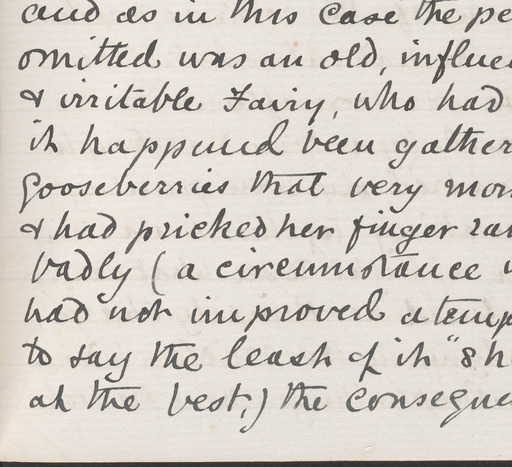 and as in this case the pe
omitted was an old, influe
& irritable Fairy, who had
it happened been gather
gooseberries that very mor
& had pricked her finger ra
badly (a circumstance
had not improved a temp
to say the least of it "sh
at the best,) the conseque